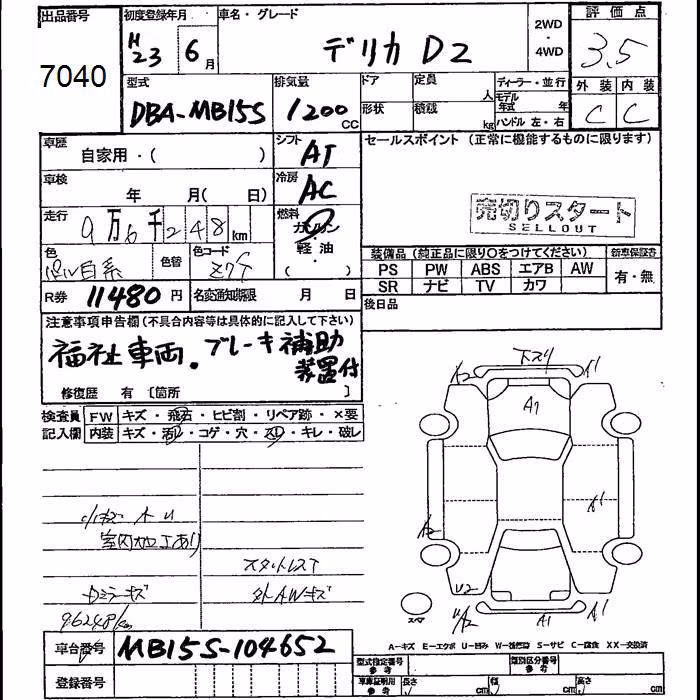 出品番号 初度登録年月 車名・グレード 2WD ・ 4WD 評価点
7040 H23 6月 デリカ D2 3.5
型式 排気量 ドア 定員 人 ディーラー・並行 外装 内装
DBA-MB15S 1200 CC 形状 積載 kg モデル年式 年 ハンドル 左・右 C C
車歴 自家用・( ) シフト AT セールスポイント (正常に機能するものに限ります)
車検 年 月( 日) 冷房 AC
売切りスタート
SELLOUT
走行 9万6千248km 燃料 ガソリン 軽油・( )
色 パール白系 色替 色コード Z7T
装備品 (純正品に限り○をつけてください) 新車保証書
PS PW ABS エアB AW 有・無
SR ナビ TV カワ
R券 11480円 名変通知期限 月 日 後日品
注意事項申告欄 (不具合内容等は具体的に記入して下さい)
福祉車両。ブレーキ補助
装置付
修復歴 有 〔箇所 〕
検査員 FW キズ・飛石・ヒビ割・リペア跡・×要
記入欄 内装 キズ・汚れ・コゲ・穴・スレ・キレ・破レ
下スリ
A2 A1
A1
A2 A1
室内加工あり
スタットレスT
ドアミラーキズ 外AWキズ
96248km
U2
U/A2 A1 A1
スペア
A-キズ E-エクボ U-凹み W-補修跡 S-サビ C-腐食 XX-交換済
車台番号 MB15S-104652
型式指定番号 参考 類別区分番号 参考
登録番号 車庫証明用 参考 長さ cm 幅 cm 高さ cm